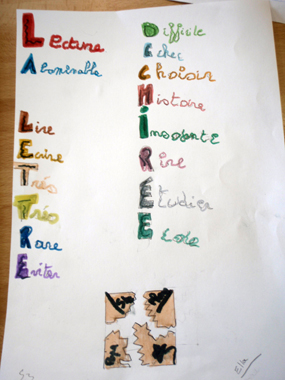 Lecture
Abominable
Lire
Ecrire
Trés
Trés
Rare
Eviter
Difficile
Echec
Choisir
Histoire
Insolente
Rire
Étudier
Ecole
Ella